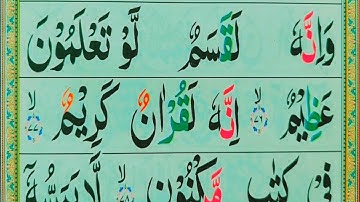 وَاِنَّهٗ لَقَسَمٌ لَّوْ تَعْلَمُوْنَ
عَظِيْمٌ ۙ﴿۷۶﴾ اِنَّهٗ لَقُرْاٰنٌ كَرِيْمٌ ۙ﴿۷۷﴾
فِيْ كِتٰبٍ مَّكْنُوْنٍ ۙ﴿۷۸﴾ لَّا يَمَسُّهٗۤ